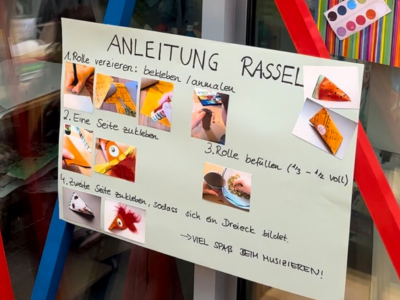 ANLEITUNG RASSEL
1. Rolle verzieren: bekleben / anmalen
2. Eine Seite zukleben
3. Rolle befüllen (1/3 - 1/2 voll)
4. zweite Seite zukleben, sodass sich ein Dreieck bildet.
→ VIEL SPAß BEIM MUSIZIEREN!